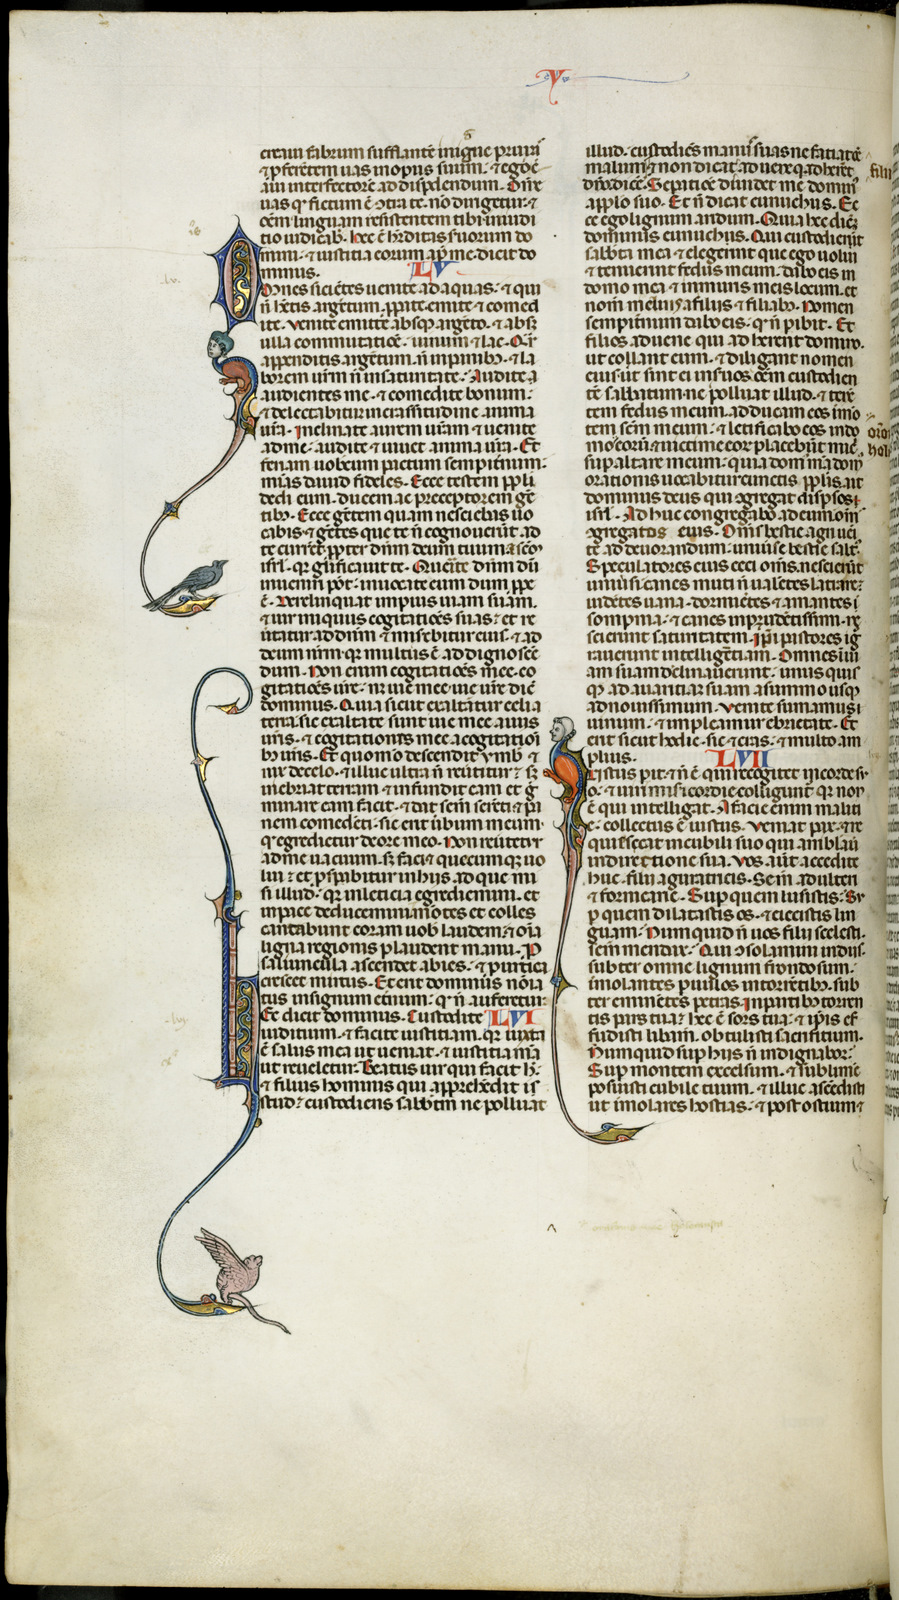 V
creaui fabrum sufflantē in igne prunas
⁊ pferētem uas in opus suum. ⁊ ego c̄
aui interfectorē ad disp̱dendum. Om̄e
uas q̱ fictum ē ɔtra te. nō dirigetur. ⁊
oēm linguam resistentem tibi in iudi
tio iudicab. hec ē h̄editas suorum do
mini. ⁊ iustitia eorum ap̱ me. dicit do
minus. LV
Omnes sicīētes uenite ad aquas. ⁊ qui
n̄ h̄etis argētum. p̱perate emite ⁊ comed
ite. Venite emitte absq̱ argēto. ⁊ absq̱
ulla commutatiōe. uinum ⁊ lac. Q̱r
appenditis argētum. n̄ in panibȝ. ⁊ la
borem ur̄m n̄ in saturitate. Audite a
audientes me. ⁊ comedite bonum.
⁊ delectabitur in crassitudine anima
ur̄a. Inclinate aurem ur̄am ⁊ uenite
ad me. audite ⁊ uiuet anima ur̄a. Et
feriam uobcum pactum sempit̄num.
mīas dauid fideles. Ecce testem pp̱li
dedi eum. ducem ac preceptorem gē
tibȝ. Ecce gētem quam nesciebas uo
cabis. ⁊ gētes que te n̄ cognouerūt ad
te current. p̱pter dn̄m deum tuum ⁊ scm̄
isrl̄. q̱ gl̄ificauit te. Querite dn̄m dū
inueniri pōt. inuocate eum dum p̱pe
ē. Derelinquat impius uiam suam.
⁊ uir iniquus cogitatiōes suas. et re
u̅tatur ad dn̄m ⁊ mis̄ebitur eius. ⁊ ad
deum nr̄m. q̱r multus ē ad ignoscē
dum. Non enim cogitatiōes mee. co
gitatiōes ur̄e. neq̱ uie mee. uie ur̄e dic̄
dominus. Quia sicut exaltātur celi a
terra. sic exaltate sunt uie mee a uiis
ur̄is. ⁊ cogitationes mee a cogitatiōi
bȝ ur̄is. Et quomō descendit ymb̄ ⁊
nix de celo. ⁊ illuc ultra n̄ reu̅titur ⁊ sȝ
inebriat terram ⁊ infundit eam et g̱
minare eam facit. ⁊ dat sem̄ serēti ⁊ pa
nem comedēti. sic erit u̅bum meum
q̱ egredietur de ore meo. Non reu̅tetur
ad me uacuum. sȝ faciet quecumq̱ uo
lui. ⁊ et p̱sp̱abitur in hiis ad que mi
si illud. q̱r in leticia egrediemini. et
in pace deducemini. mōtes et colles
cantabunt coram uob laudem. ⁊ om̄ia
ligna regionis plaudent manu. P
saliuncula ascendet abies. ⁊ p̱ urtica
crescet mirtus. Et erit dominus noīa
tus in signum et̄num. q̱ n̄ auferetur.
Ec dicit dominus. Custodite LVI
iuditium. ⁊ facite iustitiam. q̱r iuxta
ē salus mea ut ueniat. ⁊ iustitia m̄a
ut reueletur. Beatus uir qui facit h̄.
⁊ filius hominis qui apprehēdit is
stud. custodiens sabb̄tm ne polluat
illud. custodiēs manus suas ne faciat oē
malum. ⁊ non dicat aduene q̱ adheret
dn̄o dicēs. Sep̱atiōe diuidet me domin̄
a pp̱lo suo. Et n̄ dicat eunuchus. Ec
ce ego lignum aridum. Quia hec dic̄
dominus eunuchis. Qui custodierit
sabb̄ta mea ⁊ elegerint que ego uolui
⁊ tenuerint fedus meum. dabo eis in
domo mea ⁊ in muris meis locum. et
nom̄ melius a filiis ⁊ filiabȝ. Nomen
sempit̄num dabo eis. q̱ n̄ p̱ibit. Et
filios aduene qui adherent domino.
ut collant eum. ⁊ diligant nomen
eius. ut sint ei in s̱uos. oēm custodien
tē sabbatum ne polluat illud. ⁊ tene
tem fedus meum. adducam eos in mō
tem sc̄m meum. ⁊ letificabo eos in do
mo eorū ⁊ uictime eor̄ placebūt michi
sup̱ altare meum. quia dom̄ m̄a dom̄
orationis uocabitur cunctis pp̱lis. ait
dominus deus qui ɔgregat disp̱sos
isrl̄. Ad huc congregabo ad eum om̄
ɔgregatos eius. Om̄s bestie agri ueni
te ad deuorandum. uniuerse bestie salt̄.
Speculatores eius ceci om̄s. nescierūt
uniuersi canes muti n̄ ualētes latrare.
uidētes uana. dormiētes ⁊ amantes
sompnia. ⁊ canes inprudētissimi. n̄
scierunt saturitatem. Ip̄i pastores ig
rauerunt intelligētiam. Omnes in ui
am suam declinauerunt. unus quis
q̱ ad auaritiam suam a summo usq̱
ad nouissimum. Venite sumamus
uinum. ⁊ impleamur ebrietate. Et
erit sicut hodie. sic ⁊ cras. ⁊ multo am
plius. LVII
Iustus p̱it. ⁊ n̄ ē qui recogitet in corde su
o. ⁊ uiri misericordie colligunt̄. q̱r non
ē qui intelligat. A facie enim maliti
e. collectus ē iustus. Veniat pax. ⁊ re
quiescat in cubili suo qui amblaū
in directione sua. Vos aūt accedite
huc. filii auguratricis. Sem̄ adulteri
⁊ fornicarie. Sup̱ quem lusistis. Su
p̱ quem dilatastis os. ⁊ eiecistis lin
guam. Numquid n̄ uos filii scelesti.
semē mendax. Qui ɔsolamini in diis.
subter omne lignum frondosum.
imolantes p̱uulos in torrētibȝ. sub
ter eminētes petras. In partibȝ torren
tis pars tua. hec ē sors tua. ⁊ ip̄is ef
fudisti libam. obtulisti sacrifitium.
Numquid sup̱ hiis n̄ indignabor.
Sup̱ montem excelsum. ⁊ sublime
posuisti cubile tuum. ⁊ illuc ascēdisti
ut imolares hostias. ⁊ post ostium ⁊